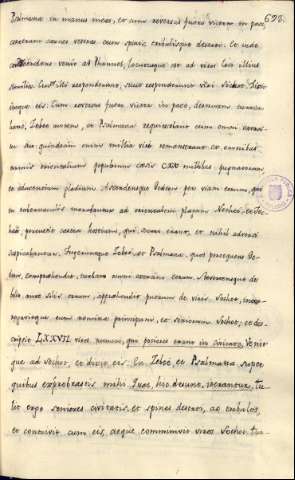 698.
Psalmana in manus meas, et cum reversus fuero victor in pace,
conteram carnes vestras cum spinis tribulisque deserti. Et inde
conscendens venit ad Phanuel, locutusque est ad viros loci illius
similia. Cui et illi responderunt, sicut responderant viri Sochot. Dixit
itaque eis: Cum reversus fuero victor in pace, destruam turrem
hanc. Zebee autem, et Psalmana requiescebant cum omni exerci-
tu suo quindecim enim millia viri remanserant ex omnibus
turmis orientalium populorum caesis CXX millibus pugnatorum
et educentium gladium. Ascendensque Gedeon per viam eorum, qui
in tabernaculis morabantur ad orientalem plagam Nobee, et Jec-
baa, percussit castra hostium, qui securi erant, et nihil adversi
suspicabantur. Fugeruntque Zebee, et Psalmana quos persequens Ge-
deon, comprehendit, turbato omni exercitu eorum. Revertensque de
bello ante solis ortum, apprehendit puerum de viris Sochot, inter-
rogavitque eum nomina principum, et seniorum Sochot, et des-
cripsit LXXVII viros
Venit-
que ad Sochot, et dixit eis: En Zebee, et Psalmana super
quibus exprobrastis mihi
Tu-
lit ergo seniores civitatis, et spinas deserti, ac tribulos,
et contrivit cum eis, atque comminuit viros Sochot. Tur-